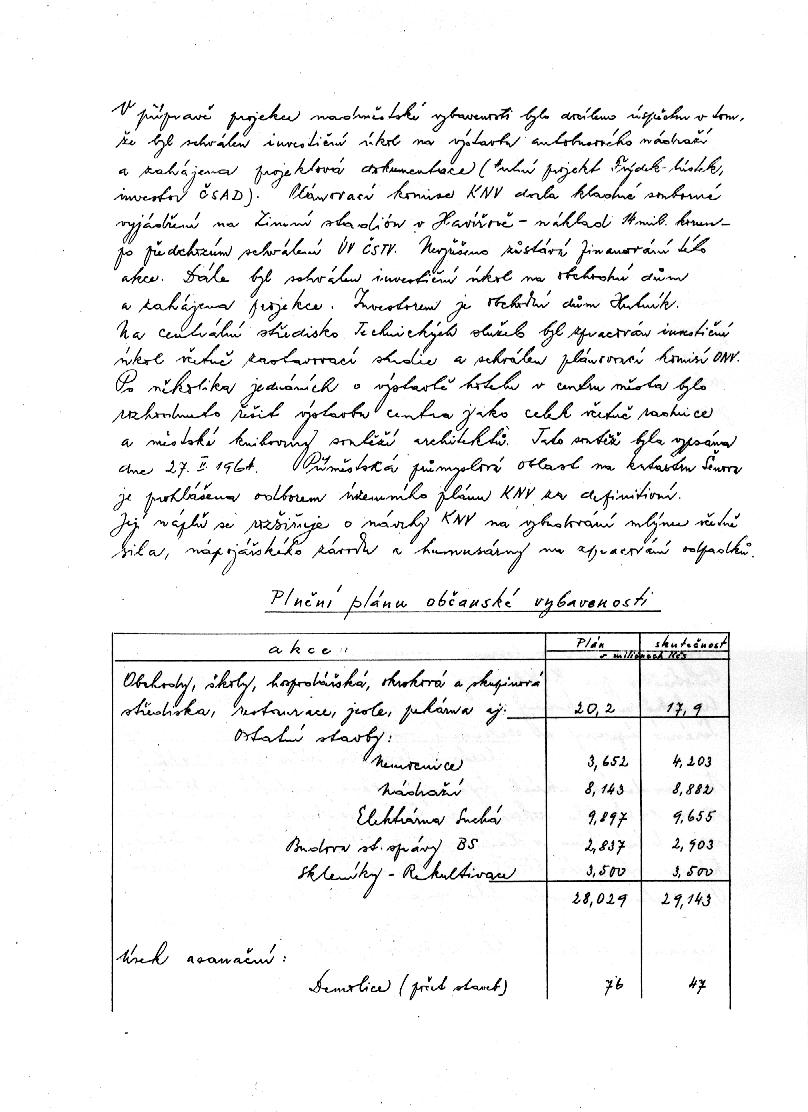 V přípravě projekce nadměstské vybavenosti bylo docíleno úspěchu v tom,
že byl schválen investiční úkol na výstavbu autobusového nádraží
a zahájena projektová dokumentace (Stavební projekt Frýdek-Místek,
investor ČSAD). Plánovací komise KNV dala kladné souborné
vyjádření na Zimní stadión v Havířově - náklad 14 mil. korun -
po předchozím schválení ÚV ČSTV. Nevyřešeno zůstává financování této
akce. Dále byl schválen investiční úkol na obchodní dům
a zahájena projekce. Investorem je obchodní dům Hutník.
Na centrální středisko Technických služeb byl zpracován investiční
úkol včetně zastavovací studie a schválen plánovací komisí ONV.
Po několika jednáních o výstavbě hotelu v centru města bylo
rozhodnuto řešit výstavbu centra jako celek včetně radnice
a městské knihovny soutěží architektů. Tato soutěž byla vypsána
dne 27. II 1964. Průmyslová oblast na katastru Šenova
je prohlášena odborem územního plánu KNV za definitivní.
Její náplň se rozšiřuje o návrhy KNV na vybudování mlýnce včetně
sila, nápojářského závodu a humusárny na zpracování odpadků.
Plnění plánu občanské vybavenosti
akce: Plán skutečnost
v miliónech Kčs
Obchody, školy, hospodářská, okrsková a skupinová
střediska, restaurace, jesle, pekárna aj. 20,2 17,9
Ostatní stavby:
Nemocnice 3,652 4,203
Nádraží 8,143 8,882
Elektrárna Suchá 9,897 9,655
Budova st. správy BS 2,837 2,903
Skleníky - Rekultivace 3,500 3,500
28,029 29,143
Úsek asanační:
Demolice (počet staveb) 76 47